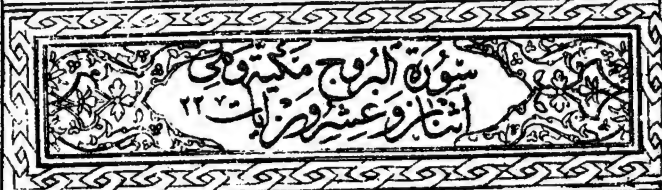 سُورَةُ البُرُوجِ مَكِّيَّةٌ وَهِيَ
اثْنَانِ وَعِشْرُونَ آيَات ٢٢